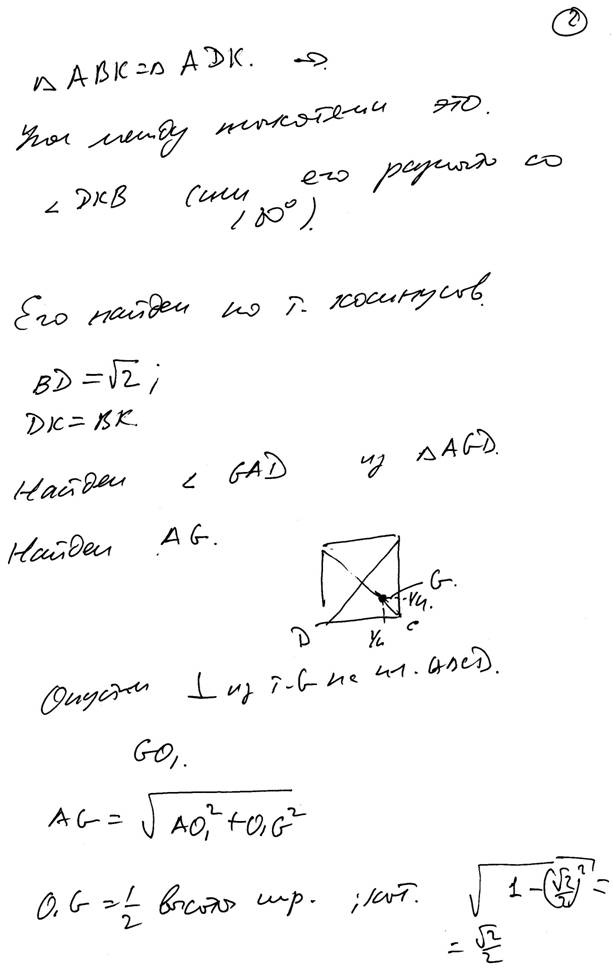 2
△ ABK = △ ADK. ⇒
Угол между плоскостями это.
∠ DKB (или его разность со
180°).
Его найдем по т. косинусов.
BD = √2;
DK = BK.
Найдем ∠ GAD из △AGD.
Найдем AG.
G.
1/4.
D 1/4 C
Опустим ⊥ из т. G на пл. ABCD.
GO₁.
AG = √(AO₁² + O₁G²)
O₁G = 1/2 высоты пир. ; кот. √(1 - (√2/2)²) =
= √2/2